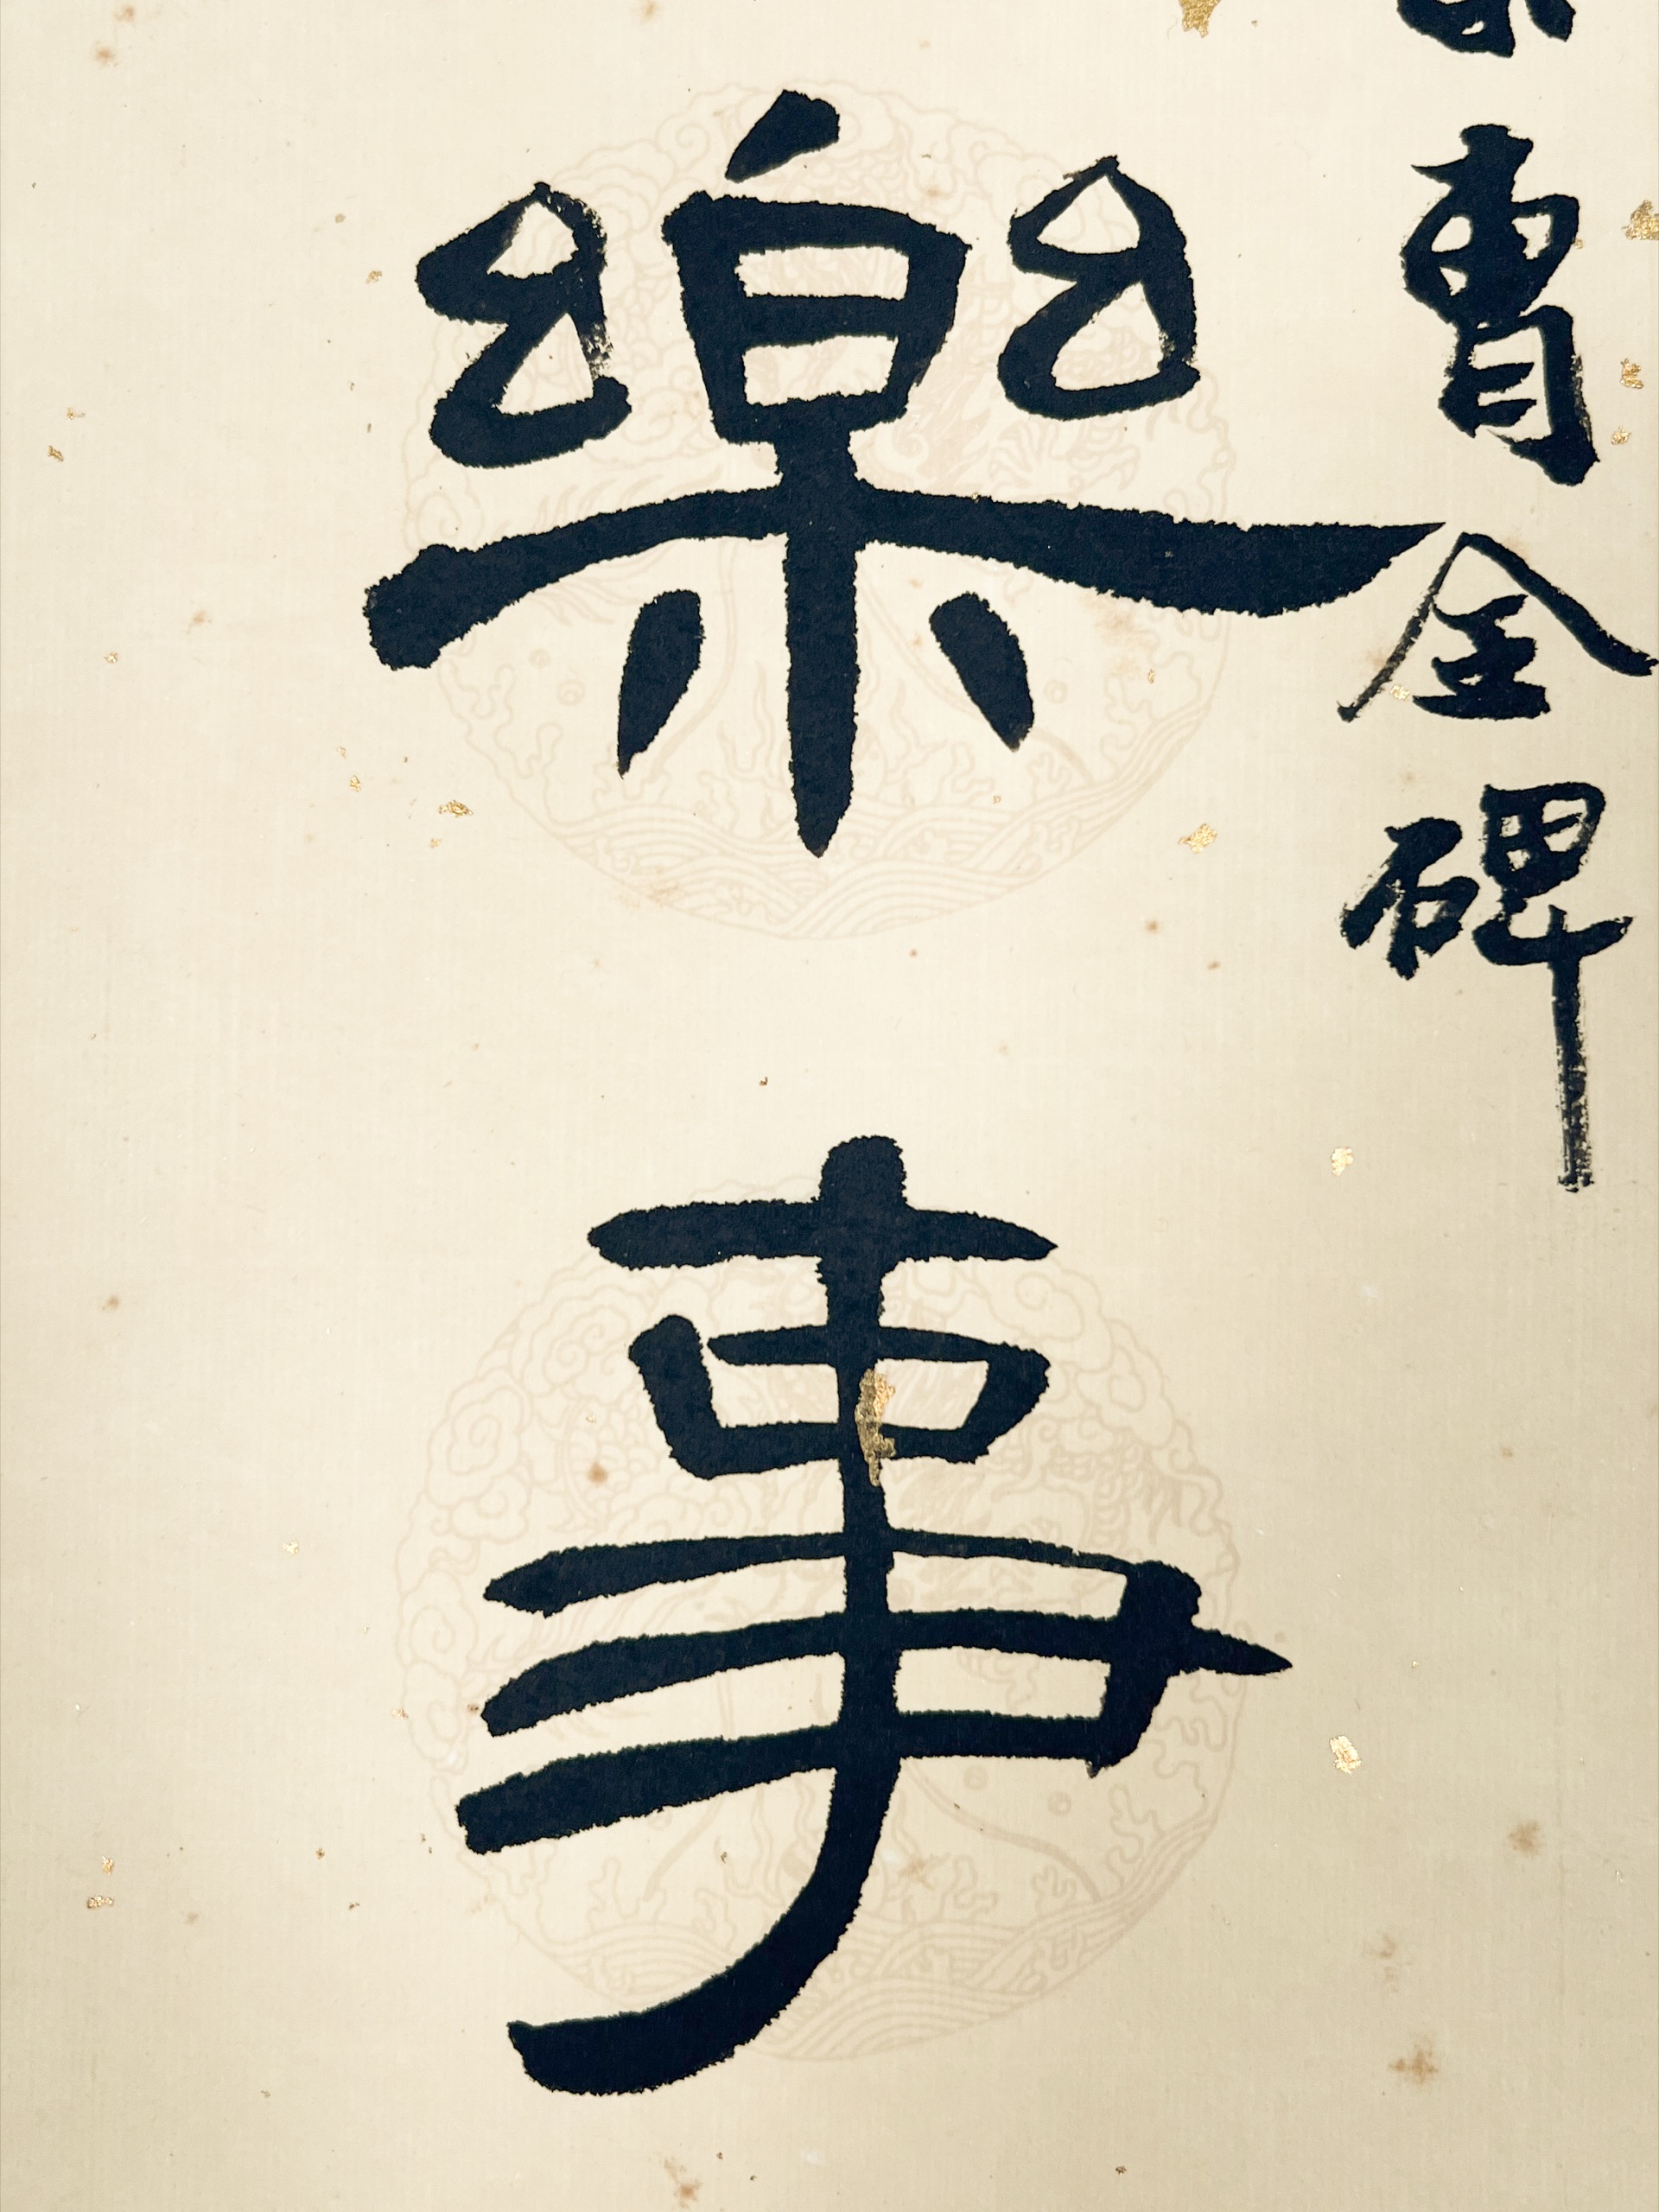 曹全碑
樂事